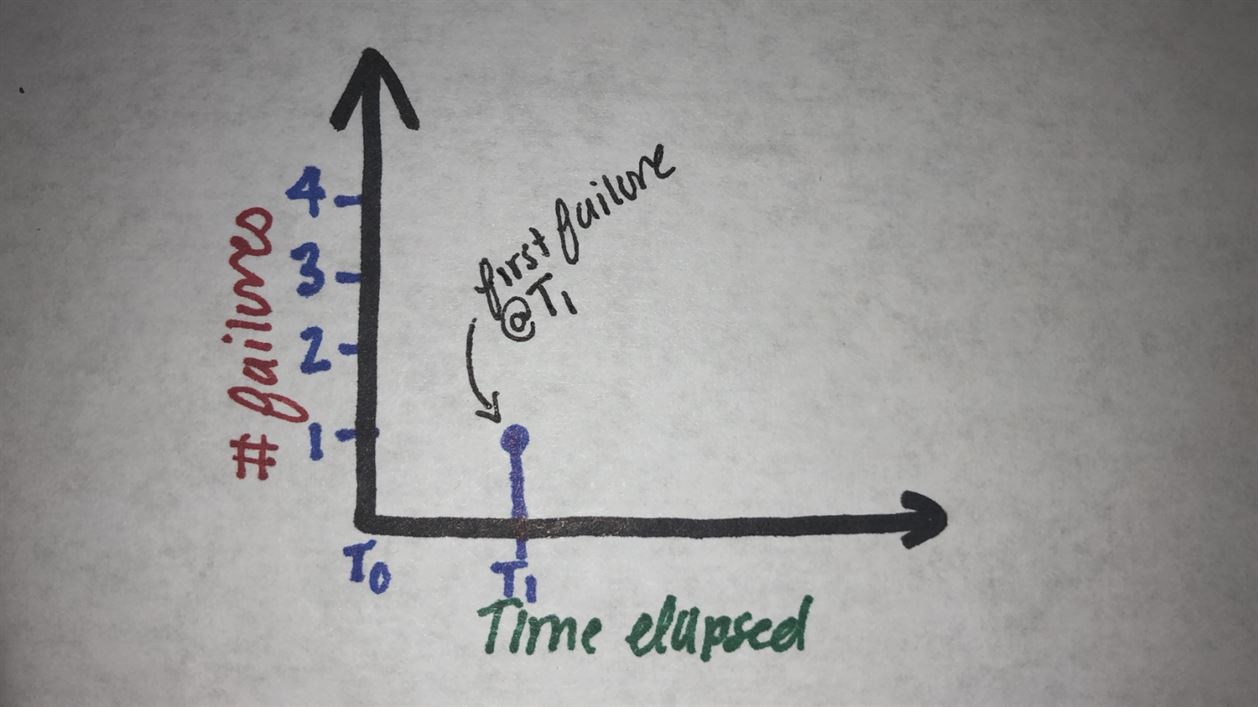 4
3
2
1
# failures
first failure
@T1
T0
T1
Time elapsed